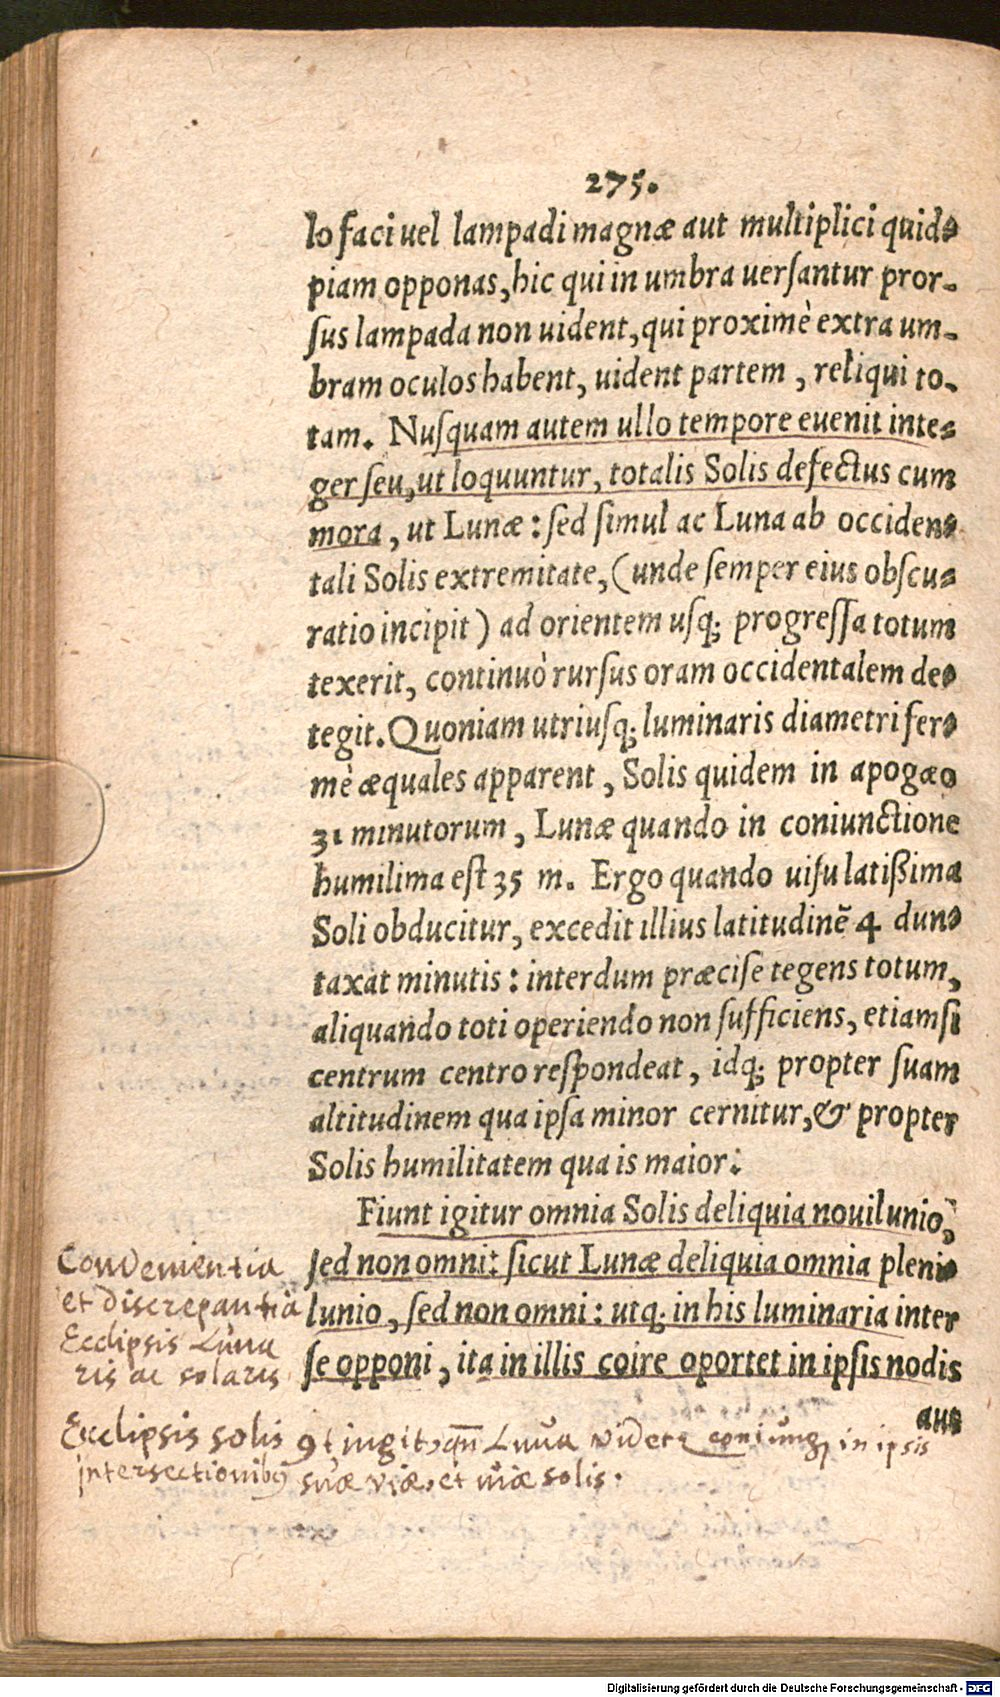 275.
lo faci uel lampadi magnæ aut multiplici quid-
piam opponas, hic qui in umbra uersantur pror-
sus lampada non uident, qui proximè extra um-
bram oculos habent, uident partem, reliqui to-
tam. Nusquam autem ullo tempore euenit inte-
ger seu, ut loquuntur, totalis Solis defectus cum
mora, ut Lunæ: sed simul ac Luna ab occiden-
tali Solis extremitate, (unde semper eius obscu-
ratio incipit) ad orientem usq; progressa totum
texerit, continuò rursus oram occidentalem de-
tegit. Quoniam utriusq; luminaris diametri fer-
mè æquales apparent, Solis quidem in apogæo
31 minutorum, Lunæ quando in coniunctione
humilima est 35 m. Ergo quando uisu latißima
Soli obducitur, excedit illius latitudinē 4 dun-
taxat minutis: interdum præcise tegens totum,
aliquando toti operiendo non sufficiens, etiamsi
centrum centro respondeat, idq; propter suam
altitudinem qua ipsa minor cernitur, & propter
Solis humilitatem qua is maior:
Fiunt igitur omnia Solis deliquia nouilunio,
sed non omni: sicut Lunæ deliquia omnia pleni-
lunio, sed non omni: utq; in his luminaria inter
se opponi, ita in illis coire oportet in ipsis nodis
aut
Convenientia
et discrepantia
Ecclipsis Luna
ris ac solaris
Ecclipsis solis 9tingit, qn̄ Luna videtr coniungj in ipsis
intersectionib9 suæ viæ, et viæ solis.
Digitalisierung gefördert durch die Deutsche Forschungsgemeinschaft - DFG